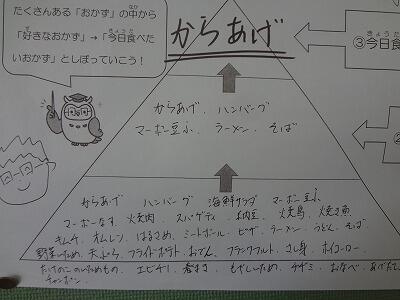 たくさんある「おかず」の中から
「好きなおかず」→「今日食べた
いおかず」としぼっていこう！
からあげ
③今日食
からあげ、ハンバーグ
マーボー豆ふ、ラーメン、そば
②
からあげ ハンバーグ 海鮮サラダ マーボー豆ふ
マーボーなす、焼肉、スパゲティ、納豆、焼鳥、焼き魚
キムチ、オムレツ、はるさめ、ミートボール、ピザ、ラーメン、うどん、そば
野菜いため、天ぷら、フライドポテト、おでん、フランクフルト、さし身、ホイコーロー
たけのこのいためもの、エビチリ、春まき、もやしいため、チヂミ、おなべ、あげだし
チャンポン